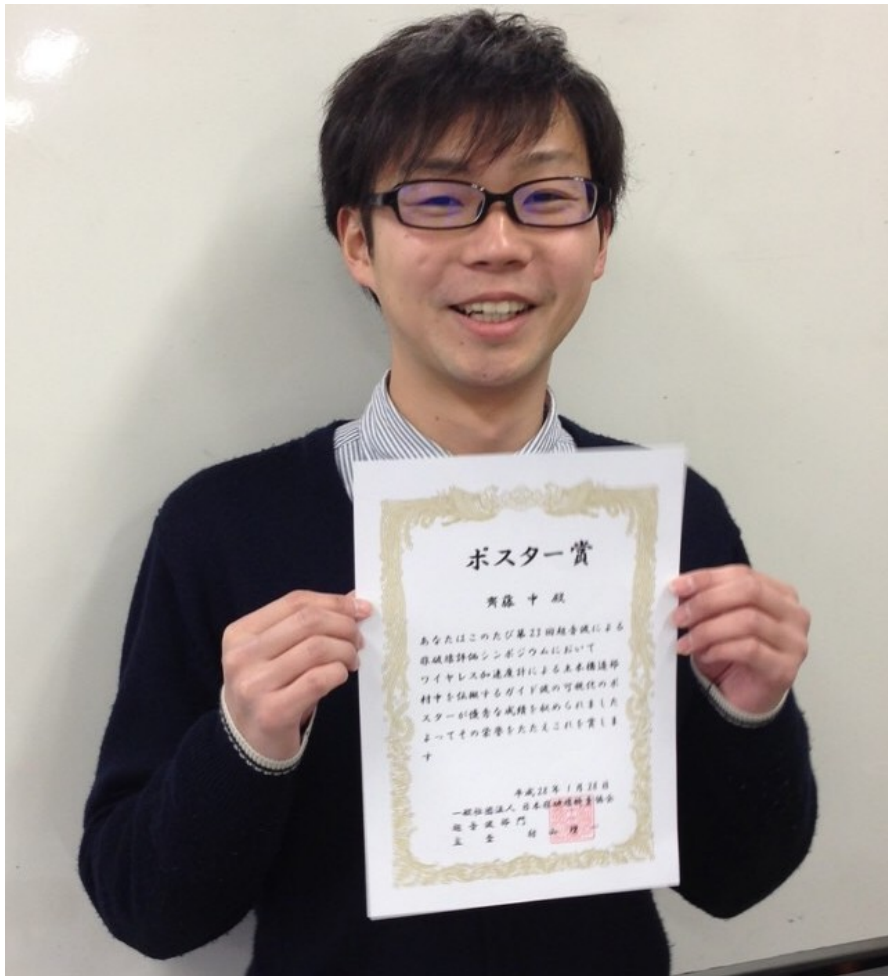 ポスター賞
齊藤 中 殿
あなたはこのたび第23回超音波による
非破壊評価シンポジウムにおいて
ワイヤレス加速度計による土木構造部
材中を伝搬するガイド波の可視化のポ
スターが優秀な成績を収められました
よってその栄誉をたたえこれを賞しま
す
平成28年1月28日
一般社団法人 日本非破壊検査協会
超音波部門
主査 山 一